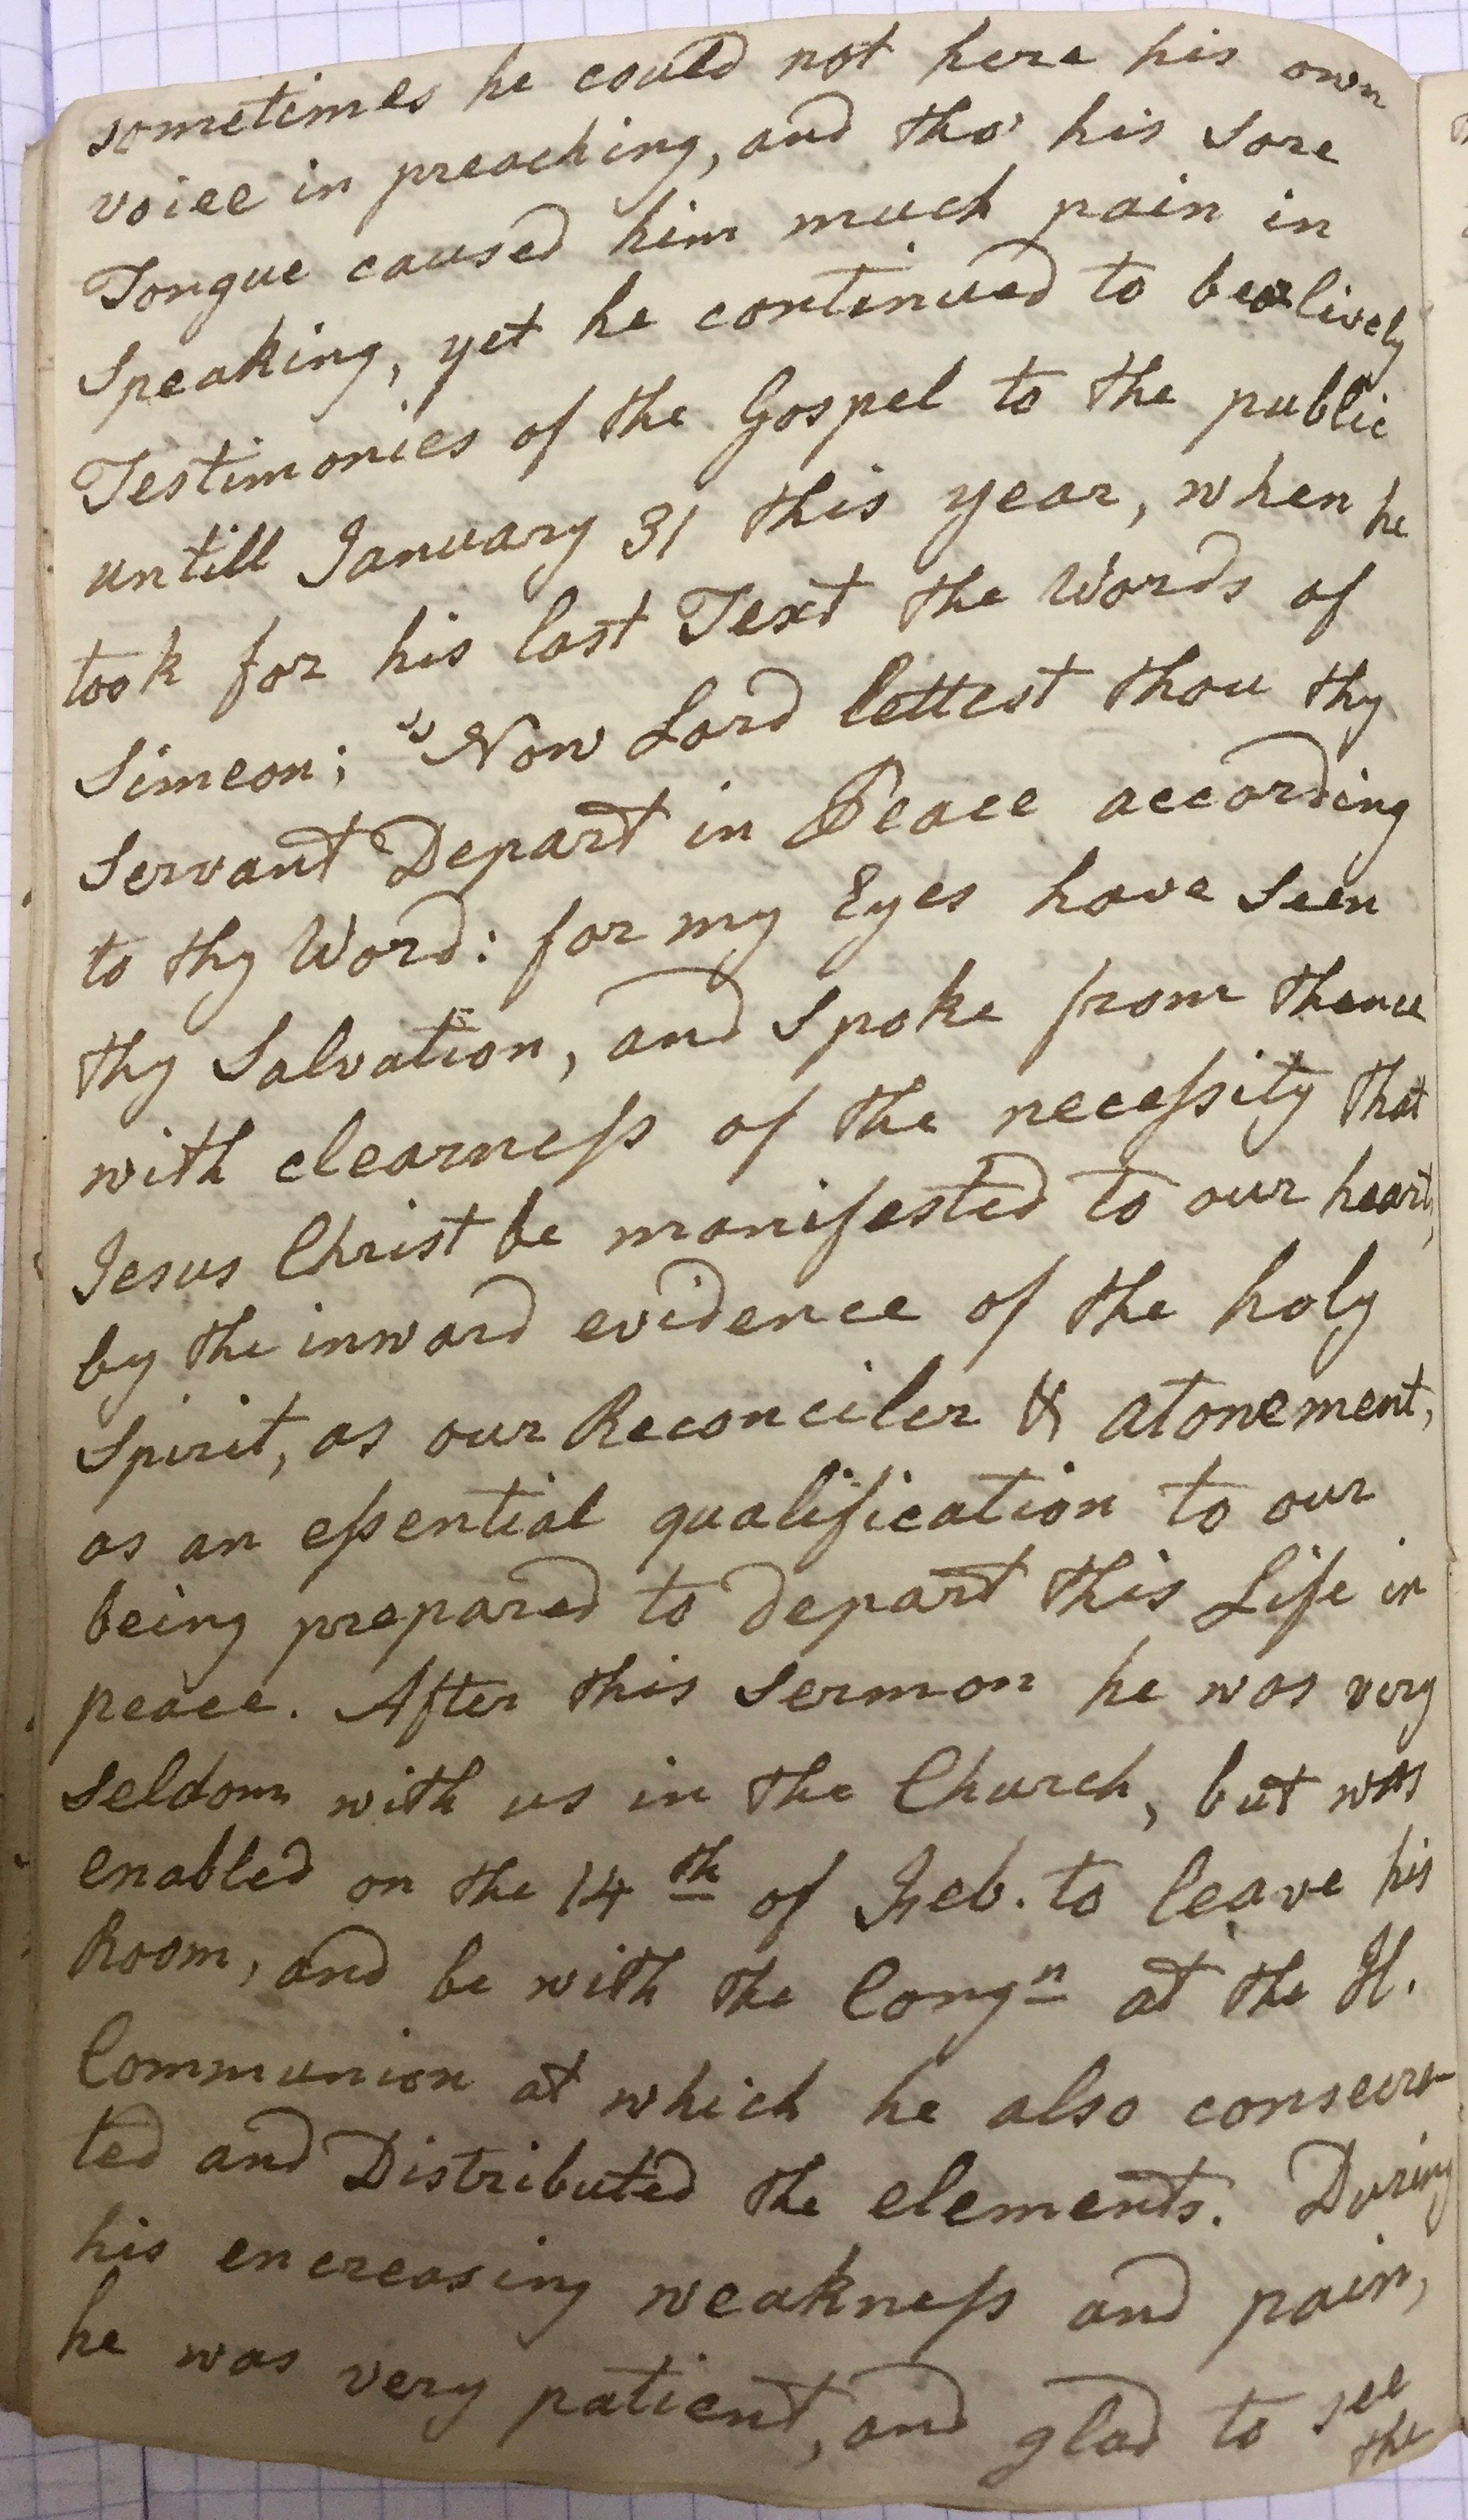 sometimes he could not here his own
voice in preaching, and tho' his sore
Tongue caused him much pain in
Speaking, yet he continued to bear lively
Testimonies of the Gospel to the public
untill January 31 this year, when he
took for his last Text the Words of
Simeon; "Now Lord lettest thou thy
Servant Depart in Peace according
to thy Word: for my Eyes have seen
thy Salvation, and spoke from thence
with clearneſs of the neceſsity that
Jesus Christ be manifested to our heart,
by the inward evidence of the holy
Spirit, as our Reconciler & atonement,
as an eſsential qualification to our
being prepared to depart this Life in
peace. After this sermon he was very
seldom with us in the Church, but was
enabled on the 14th of Feb. to leave his
Room, and be with the Congn at the H.
Communion at which he also consecra-
ted and Distributed the elements. During
his encreasing weakneſs and pain,
he was very patient, and glad to see
the